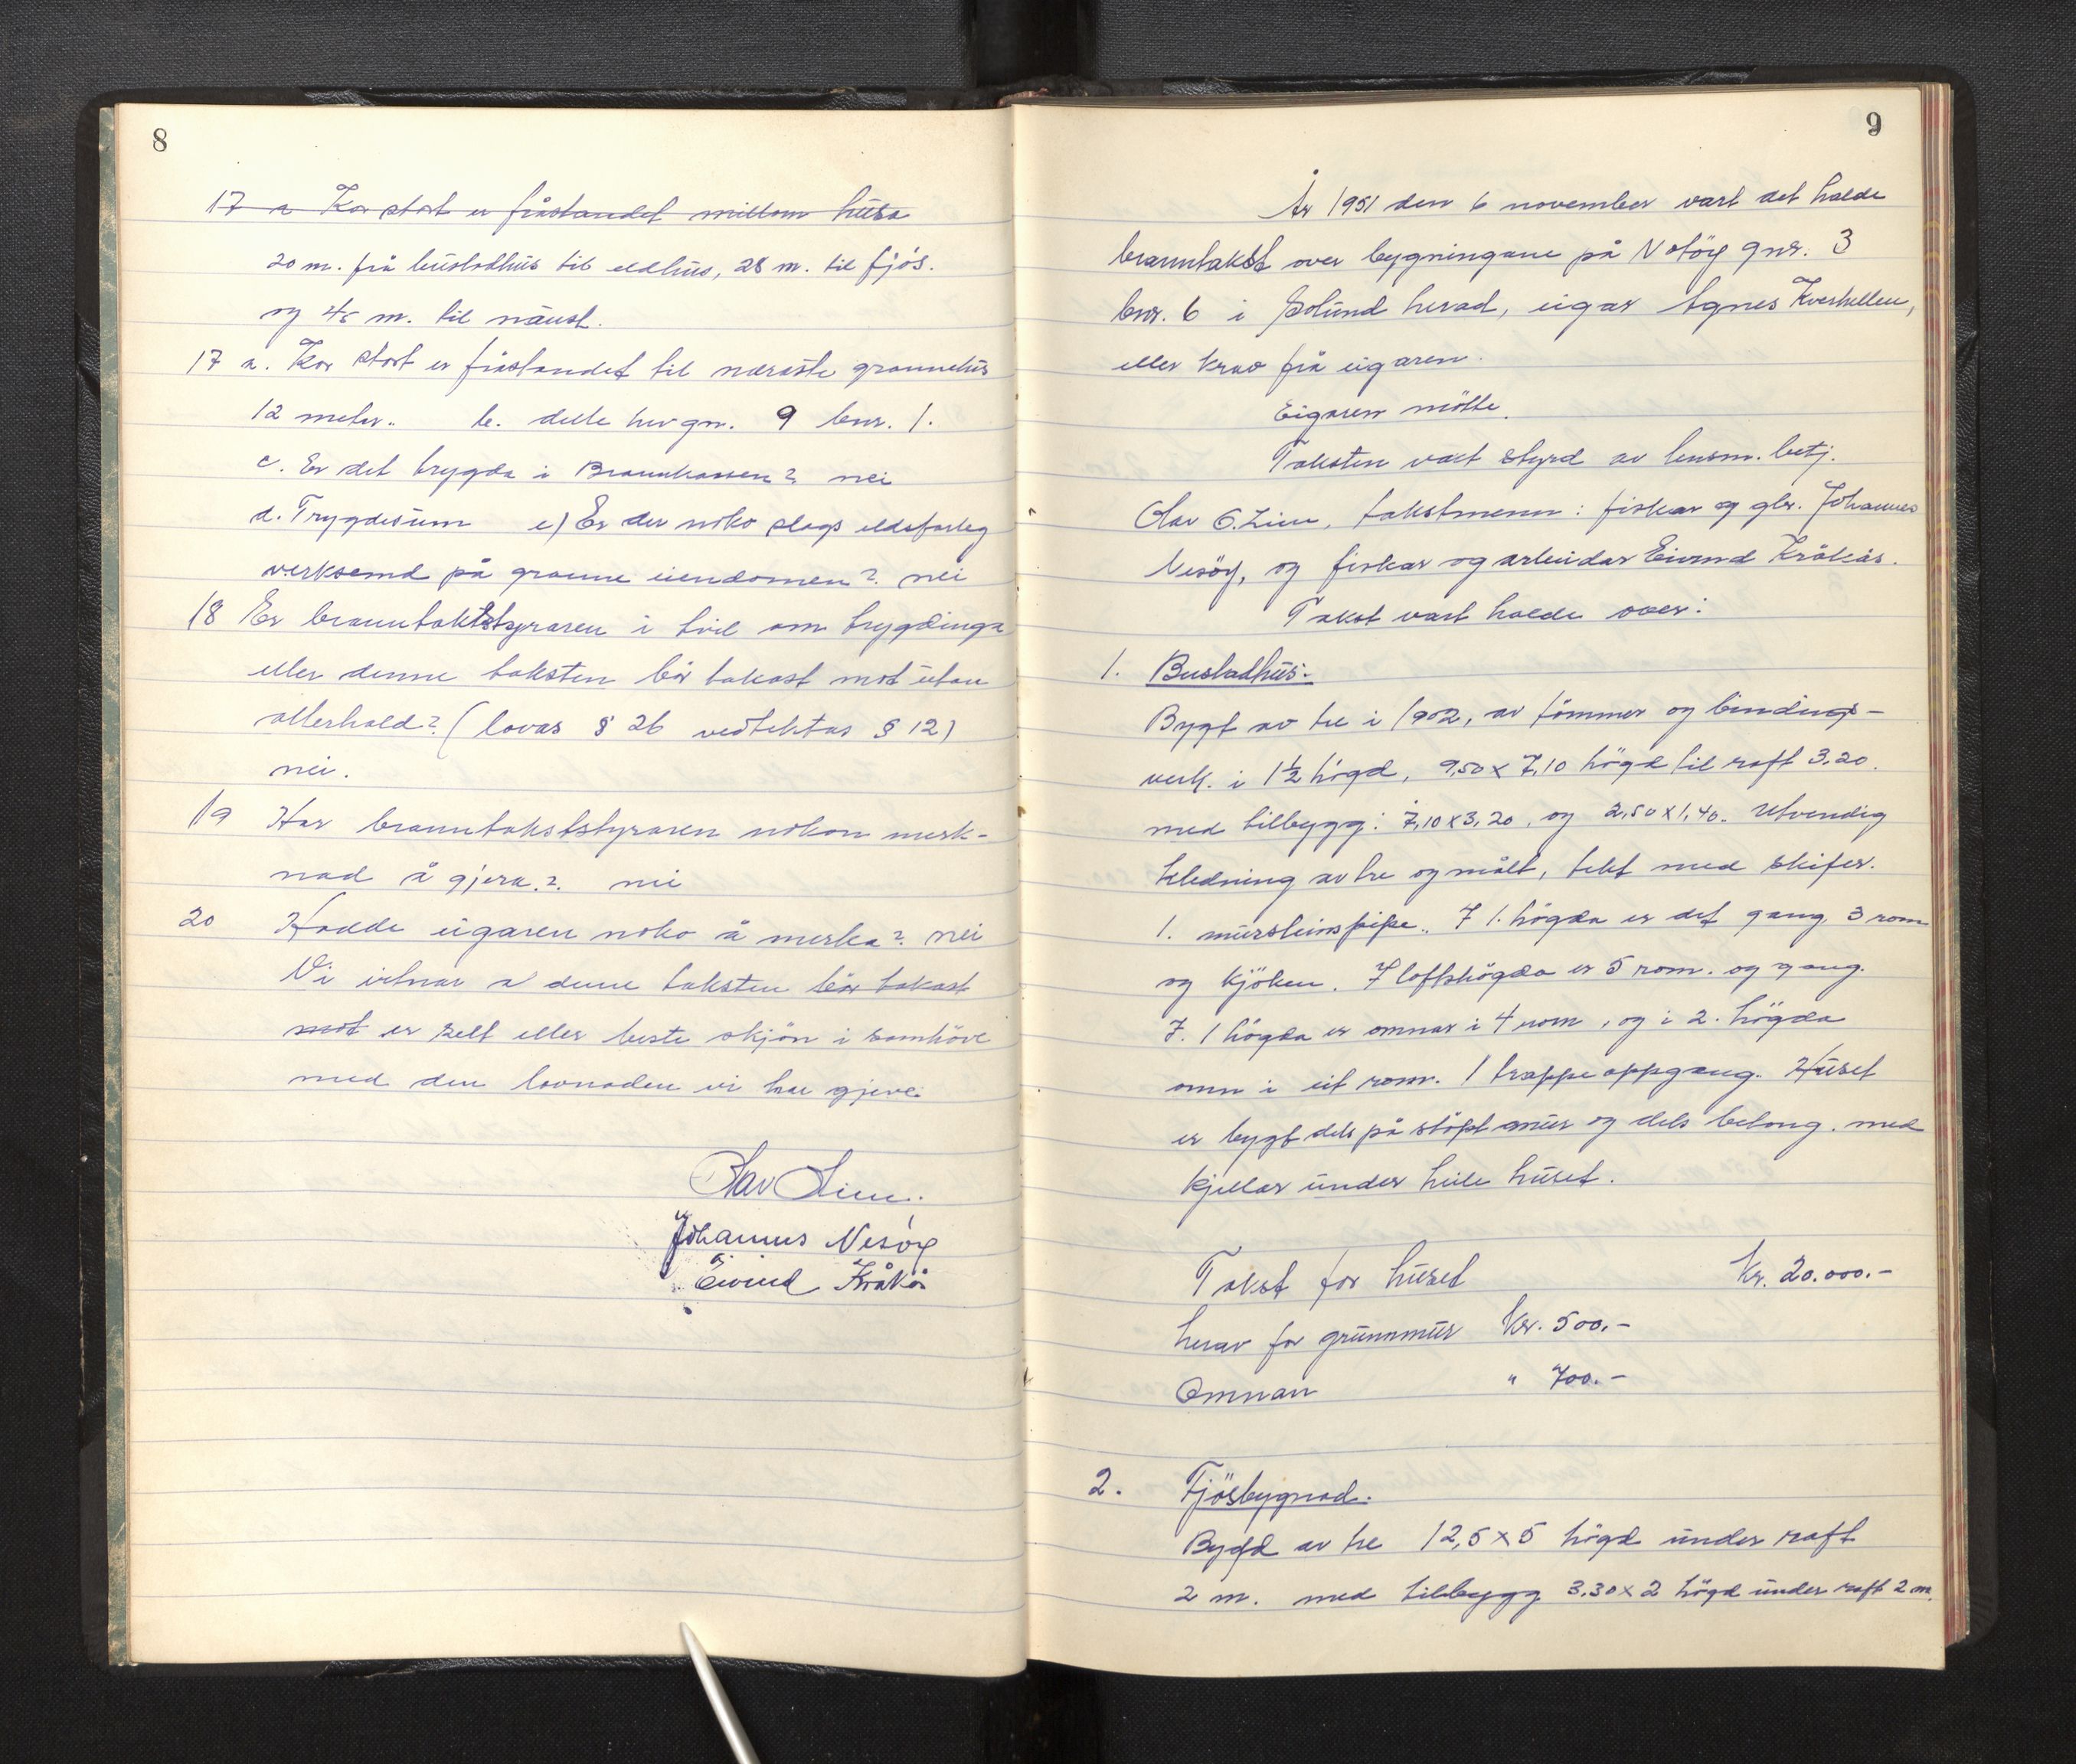 8
17 a Kor stort er fråstandet millom husa
20 m. frå bustadhus til eldhus, 28 m. til fjös.
og 45 m. til naust.
17 a. Kor stort er fråstandet til næraste grannehus
12 meter. b. dette hev gn. 9 bnr. 1.
c. Er det trygda i Brannkassen? nei
d. Trygdesum e) Er der noko slags eldsfarleg
verksemd på granne eiendomen? nei
18 Er branntakststyraren i tvil om trygdinga
eller denne taksten bör takast mot utan
atterhald? (lovas § 26 vedtektas § 12)
nei.
19 Har branntakststyraren nokon merk-
nad å gjera? nei
20 Hadde eigaren noko å merka? nei
Vi vitnar a denne taksten bör takast
mot er sett etter beste skjön i samhöve
med den lovnaden vi har gjeve.
Olav Lien.
Johannes Nesöy
Eivind Kråkås
9
År 1951 den 6 november vart det halde
branntakst over bygningane på Notöy gnr. 3
bnr. 6 i Solund herad, eigar Agnes Kverhellen,
etter krav frå eigaren.
Eigaren mötte.
Taksten vart styrd av lensm. betj.
Olav E. Lien, takstmenn: fiskar og gbr. Johannes
Nesöy, og fiskar og arbeidar Eivind Kråkås.
Takst vart halde over:
1. Bustadhus:
Bygt av tre i 1902, av tömmer og bindings-
verk. i 1½ högd, 9,50 x 7,10 högd til raft 3.20.
med tilbygg: 7,10 x 3,20, og 2,50 x 1,40. Utvendig
kledning av tre og målt, tekt med skifer.
1. mursteinspipe. I 1. högda er det gang, 3 rom
og kjöken. I loftshögda er 5 rom. og gang.
I. 1 högda er omnar i 4 rom, og i 2. högda
omn i eit rom. 1 trappeoppgang. Huset
er bygt dels på stöpt mur og dels betong. med
kjellar under heile huset.
Takst for huset kr. 20.000.-
herav for grunnmur kr. 500.-
Omnar " 700.-
2. Fjösbygnad.
Bygd av tre 12,5 x 5 högd under raft
2 m. med tilbygg 3.30 x 2 högd under raft 2 m.